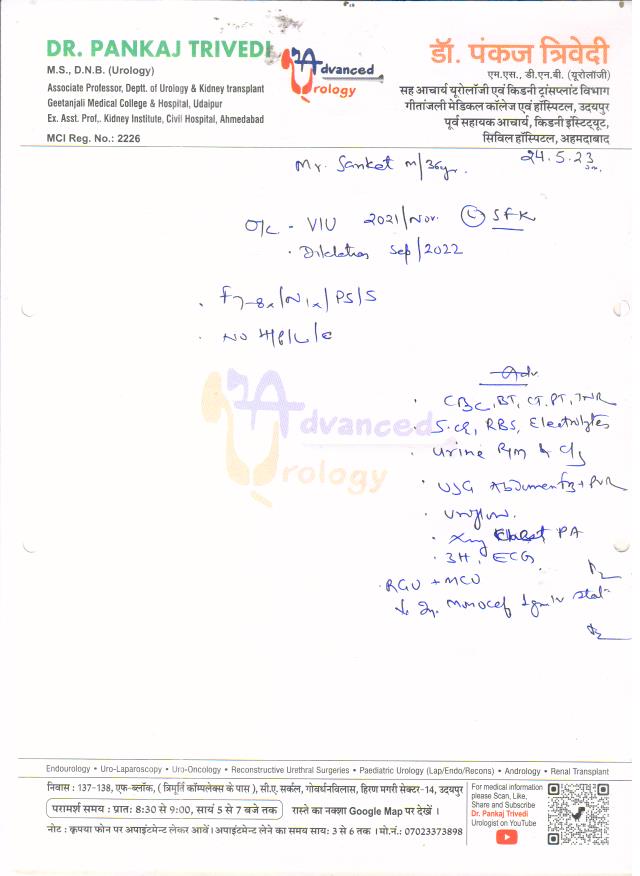 DR. PANKAJ TRIVEDI
M.S., D.N.B. (Urology)
Associate Professor, Deptt. of Urology & Kidney transplant
Geetanjali Medical College & Hospital, Udaipur
Ex. Asst. Prof,. Kidney Institute, Civil Hospital, Ahmedabad
MCI Reg. No.: 2226
Advanced
Urology
डॉ. पंकज त्रिवेदी
एम.एस., डी.एन.बी. (यूरोलॉजी)
सह आचार्य यूरोलॉजी एवं किडनी ट्रांसप्लांट विभाग
गीतांजली मेडिकल कॉलेज एवं हॉस्पिटल, उदयपुर
पूर्व सहायक आचार्य, किडनी इंस्टिट्यूट,
सिविल हॉस्पिटल, अहमदाबाद
24.5.23
Mr. Sanket m/36yr.
O/c - VIU 2021/Nov. SFK
. Dilatation Sep/2022
. F7-8x/N1x/PS/S
. NO
Adv.
. CBC, BT, CT, PT, INR
. S.cr, RBS, Electrolytes
. Urine R/m & C/s
. USG Abdomen + PVR
. Uroflow.
. Xray Chest PA
. 3H, ECG
. RGU + MCU
Inj. Monocef 1gm iv stat
Advanced
Urology
Endourology • Uro-Laparoscopy • Uro-Oncology • Reconstructive Urethral Surgeries • Paediatric Urology (Lap/Endo/Recons) • Andrology • Renal Transplant
निवास : 137-138, एफ-ब्लॉक, ( त्रिमूर्ति कॉम्पलेक्स के पास ), सी.ए. सर्कल, गोवर्धनविलास, हिरण मगरी सेक्टर-14, उदयपुर
परामर्श समय : प्रात: 8:30 से 9:00, सायं 5 से 7 बजे तक रास्ते का नक्शा Google Map पर देखें ।
नोट : कृपया फोन पर अपाइंटमेन्ट लेकर आवें। अपाइंटमेन्ट लेने का समय साय: 3 से 6 तक । मो.नं.: 07023373898
For medical information
please Scan, Like,
Share and Subscribe
Dr. Pankaj Trivedi
Urologist on YouTube